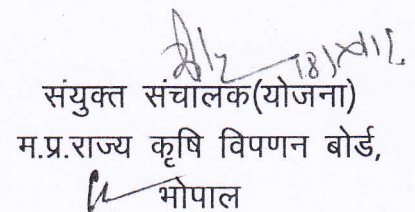 संयुक्त संचालक(योजना)
म.प्र.राज्य कृषि विपणन बोर्ड,
भोपाल